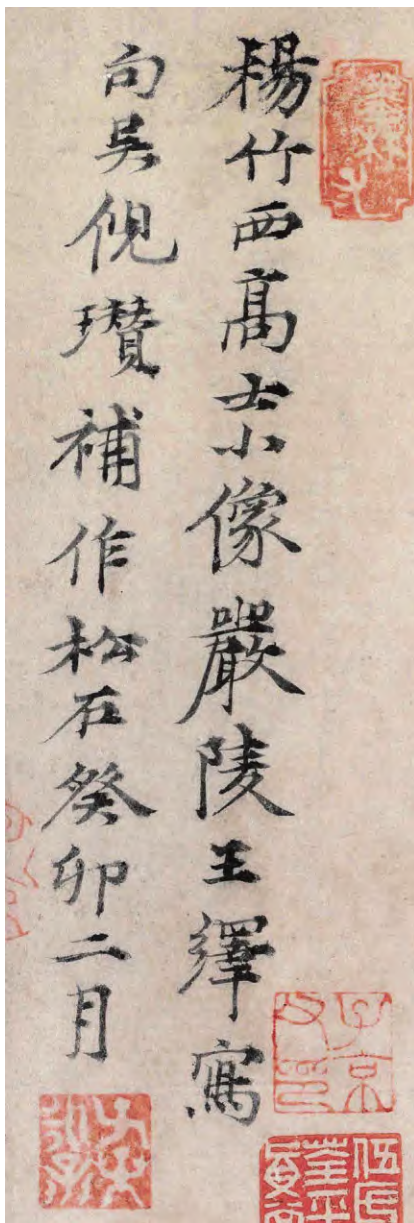 楊竹西高士小像嚴陵王繹寫
句吳倪瓚補作松石癸卯二月
子京父印